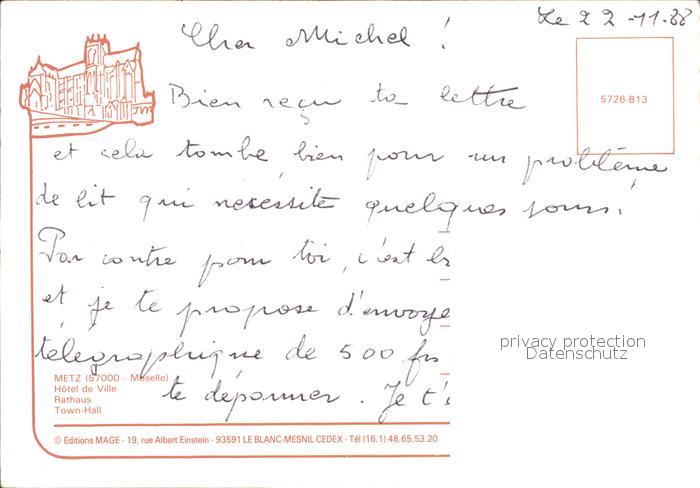 Le 22-11-88
Cher Michel !
5726-B13
Bien reçu ta lettre
et cela tombe bien pour un problème
de lit qui nécessite quelques jours.
Par contre pour toi, c'est
et je te propose d'envoye
télégraphique de 500 frs
te dépanner. Je t'
privacy protection
Datenschutz
METZ (57000 - Moselle)
Hôtel de Ville
Rathaus
Town-Hall
© Editions MAGE - 19, rue Albert Einstein - 93591 LE BLANC-MESNIL CEDEX - Tél (16.1) 48.65.53.20